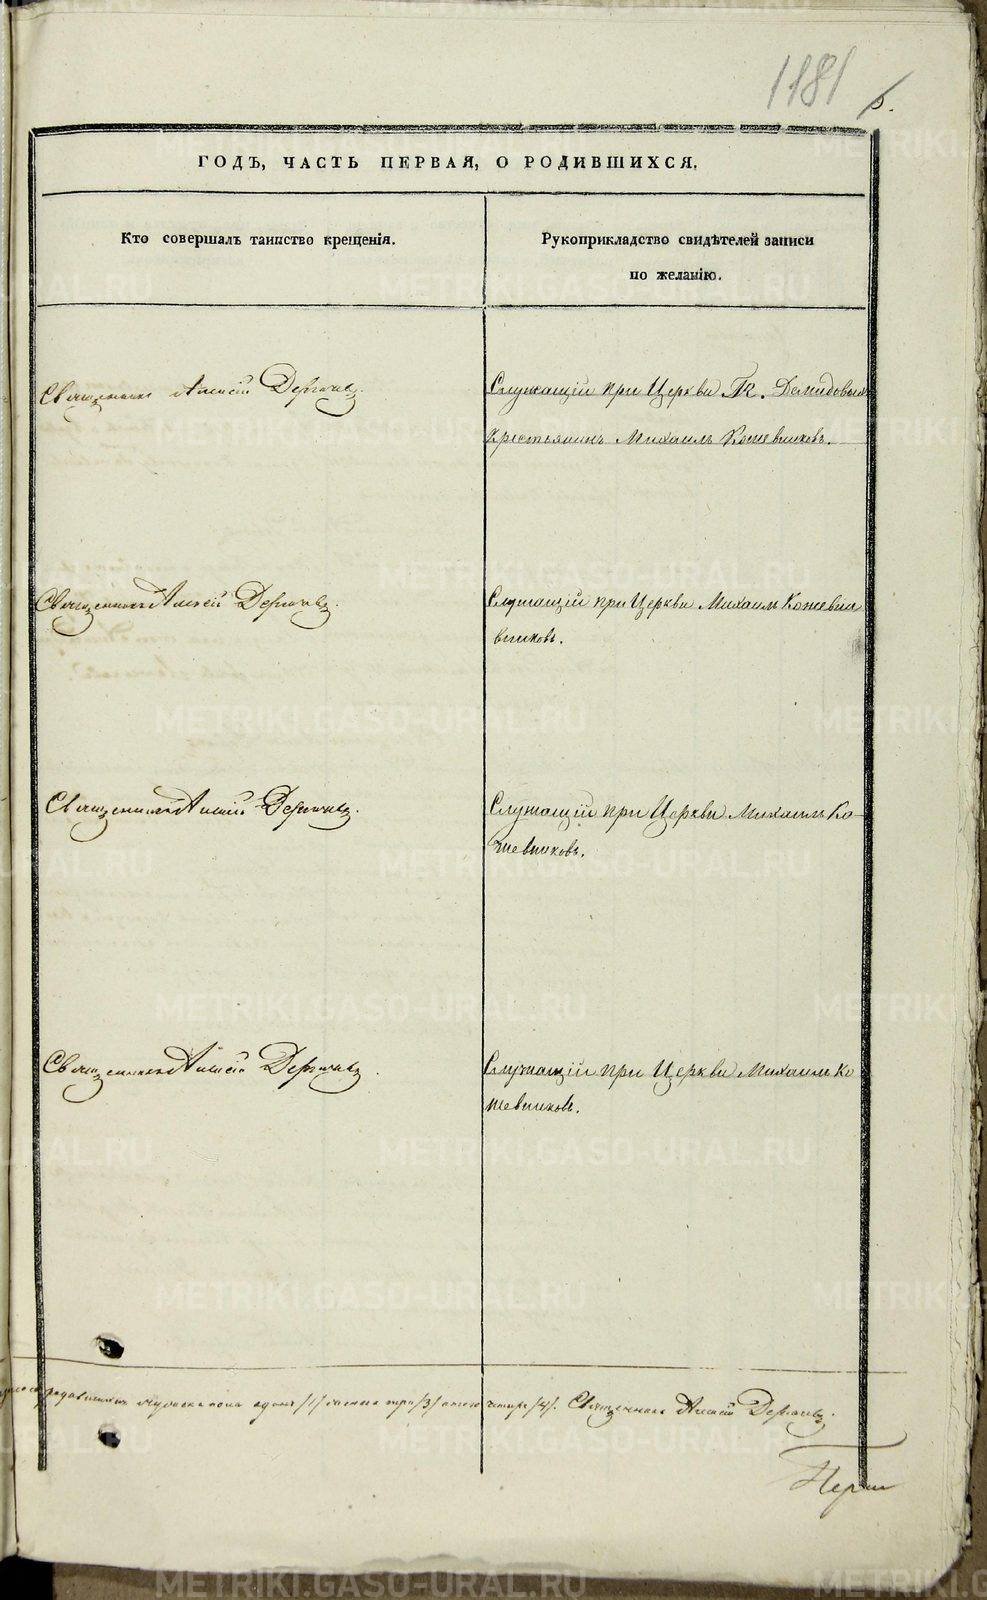 1181 5.
ГОДЪ, ЧАСТЬ ПЕРВАЯ, О РОДИВШИХСЯ.
Кто совершалъ таинство крещенія.
Рукоприкладство свидѣтелей записи
по желанію.
Священникъ Алексій
Служащій при Церкви Гг. Демидовыхъ
крестьянинъ Михаилъ Кожевниковъ.
Священникъ Алексій
Служащій при Церкви Михаилъ Кожевни
вниковъ.
Священникъ Алексій
Служащій при Церкви Михаилъ Ко-
жевниковъ.
Священникъ Алексій
Служащій при Церкви Михаилъ Ко
жевниковъ.
мужеска пола одинъ /1/ женска три /3/ итого четыре /4/. Священникъ Алексій
METRIKI.GASO-URAL.RU